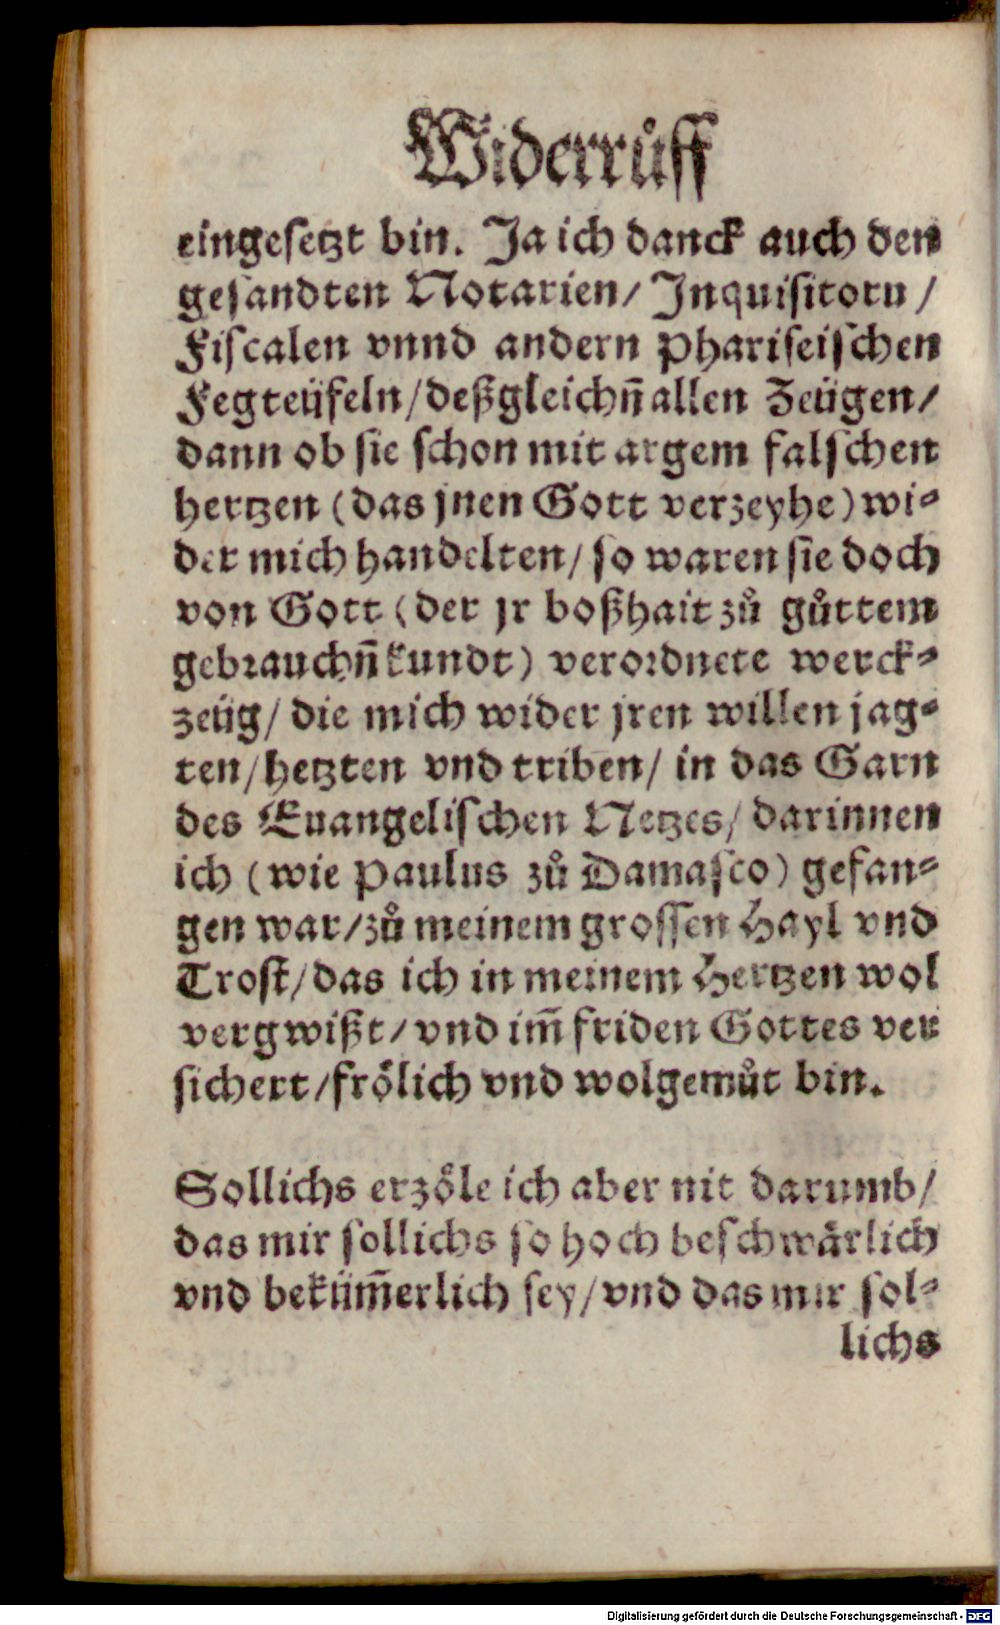 Widerrůff
eingesetzt bin. Ja ich danck auch den
gesandten Notarien/ Inquisitorn /
Fiscalen vnnd andern Phariseischen
Fegteüfeln/deßgleichn̄ allen Zeügen/
dann ob sie schon mit argem falschen
hertzen (das jnen Gott verzeyhe) wi-
der mich handelten/ so waren sie doch
von Gott (der jr boßhait zů gůttem
gebrauchn̄ kundt) verordnete werck-
zeüg/ die mich wider jren willen jag-
ten/hetzten vnd triben/ in das Garn
des Euangelischen Netzes/ darinnen
ich (wie Paulus zů Damasco) gefan-
gen war/zů meinem grossen Hayl vnd
Trost/das ich in meinem Hertzen wol
vergwißt/ vnd im̄ friden Gottes ver
sichert/frölich vnd wolgemůt bin.
Sollichs erzöle ich aber nit darumb/
das mir sollichs so hoch beschwärlich
vnd beküm̄erlich sey/vnd das mir sol-
lichs
Digitalisierung gefördert durch die Deutsche Forschungsgemeinschaft - DFG